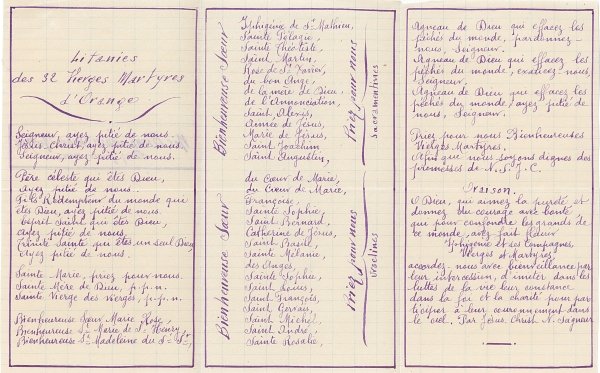 Litanies
des 32 Vierges Martyres
d'Orange
Seigneur, ayez pitié de nous.
Jésus Christ, ayez pitié de nous.
Seigneur, ayez pitié de nous.
Père céleste qui êtes Dieu,
Ayez pitié de nous.
Fils Rédempteur du monde que
êtes Dieu, ayez pitié de nous.
Esprit Saint qui êtes Dieu,
Ayez pitié de nous.
Trinité Sainte qui êtes un seul Dieu
Ayez pitié de nous.
Sainte Marie, priez pour nous.
Sainte Mère de Dieu, p.p.n.
Sainte Vierge des Vierges, p.p.n.
Bienheureuse Sœur Marie Rose,
Bienheureuse Ste Marie de St Henry
Bienheureuse Sr Madeleine du St Sr.
Bienheureuse Sœur
Iphigénie de St Mathieu,
Sainte Pélagie,
Sainte Théotiste,
Saint Martin,
Rose de St Xavier,
du bon Ange,
de la mère de Dieu.
de l'Annonciation,
Saint Alexis,
Aimée de Jésus,
Marie de Jésus,
Saint Joachim
Saint Augustin,
Priez pour nous
Sacramentines
Bienheureuse Sœur
du Cœur de Marie,
du Cœur de Marie,
Françoise,
Sainte Sophie,
Saint Bernard,
Catherine de Jésus,
Saint Basile,
Sainte Mélanie,
des Anges,
Sainte Sophie,
Saint Louis,
Saint François,
Saint Gervais,
Saint Michel,
Saint André,
Sainte Rosalie,
Priez pour nous
Ursulines
Agneau de Dieu qui effacez les
péchés du monde, pardonnez-
nous, Seigneur.
Agneau de Dieu qui effacez les
péchés du monde, exaucez-nous,
Seigneur.
Agneau de Dieu qui effacez les
péchés du monde, ayez pitié de
nous, Seigneur.
Priez pour nous Bienheureuses
Vierges Martyres.
Afin que nous soyons dignes des
promesses de N.S.J.C.
Oraison.
O Dieu, qui aimez la pureté et
donnez du courage avec bonté
qui pour confondre les grands de
ce monde, avez fait
Iphigénie et ses compagnes,
Vierges et Martyres
accordez-nous avec bienveillance par
leur intercession, d'imiter dans les
luttes de la vie leur constance
dans la foi et la charité pour par
ticiper à leur couronnement dans
le ciel. Par Jésus. Christ. N. Seigneur